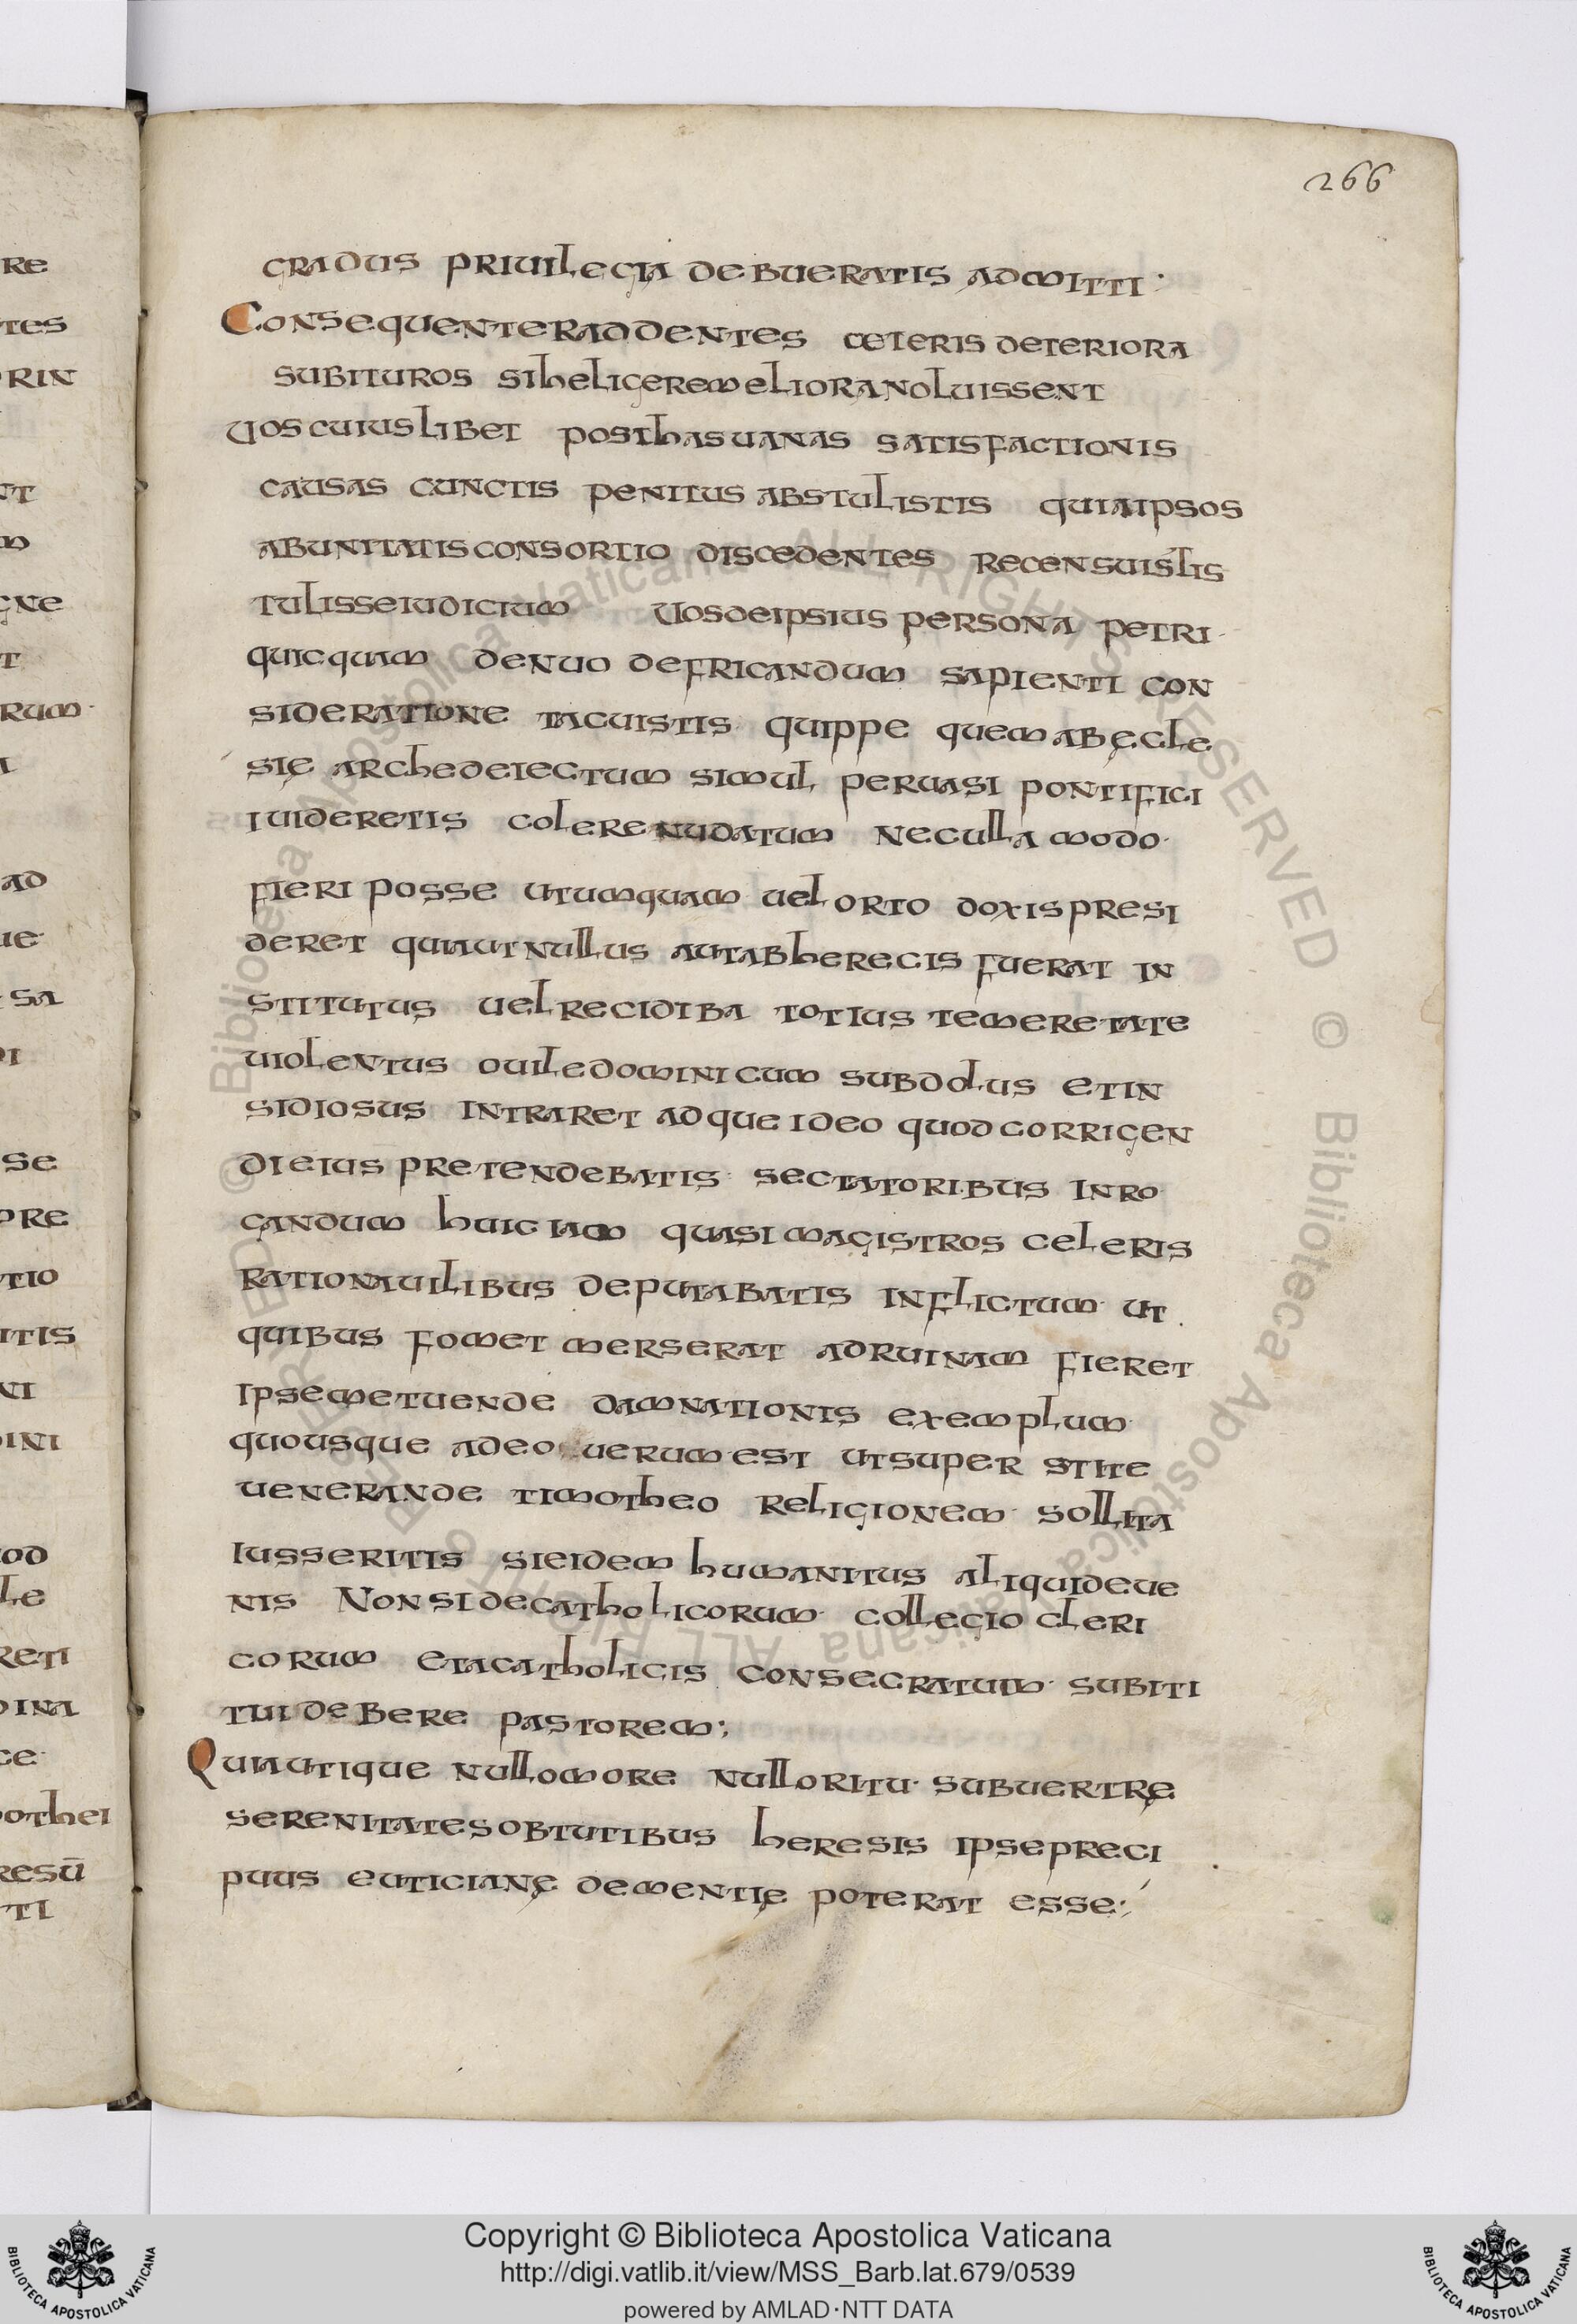 266
gradus privilegia debueratis admitti
Consequenter addentes ceteris deteriora
subituros si heligere meliora noluissent
Vos cuiuslibet post has vanas satisfactionis
causas cunctis penitus abstulistis quia ipsos
ab unitatis consortio discedentes recensuistis
tulisse iudicium Vos de ipsius persona petri
quicquam denuo defricandum sapienti con
sideratione tacuistis quippe quem ab ęcle
się arche deiectum simul pervasi pontifici
i videretis colere nudatum nec ulla modo
fieri posse ut umquam vel orto doxis presi
deret quia ut nullus aut ab heregis fuerat in
stitutus vel recidiba totius temeretate
violentus ovile dominicum subdolus et in
sidiosus intraret adque ideo quod corrigen
di eius pretendebatis sectatoribus inro
gandum huic iam quasi magistros celeris
rationavilibus deputabatis inflictum ut
quibus fomet merserat ad ruinam fieret
ipse metuende damnationis exemplum
quousque adeo verum est ut super stite
venerande timotheo religionem sollita
iusseritis si eidem humanitus aliquid eve
nis Non si de catholicorum collegio cleri
corum et a catholicis consecratum subiti
tui debere pastorem;
Quia utique nullo more nullo ritu subvertrę
serenitates obtutibus heresis ipse preci
puus euticianę dementię poterat esse
re
tes
rin
nt
m
gne
t
rum
ad
ue
sa
di
se
pre
tio
itis
ni
ini
od
le
reti
dina
ce
othei
resū
ti
© Biblioteca Apostolica Vaticana ALL RIGHTS RESERVED © Biblioteca Apostolica Vaticana ALL RIGHTS RESERVED
Copyright © Biblioteca Apostolica Vaticana
http://digi.vatlib.it/view/MSS_Barb.lat.679/0539
powered by AMLAD·NTT DATA
BIBLIOTECA APOSTOLICA VATICANA
BIBLIOTECA APOSTOLICA VATICANA